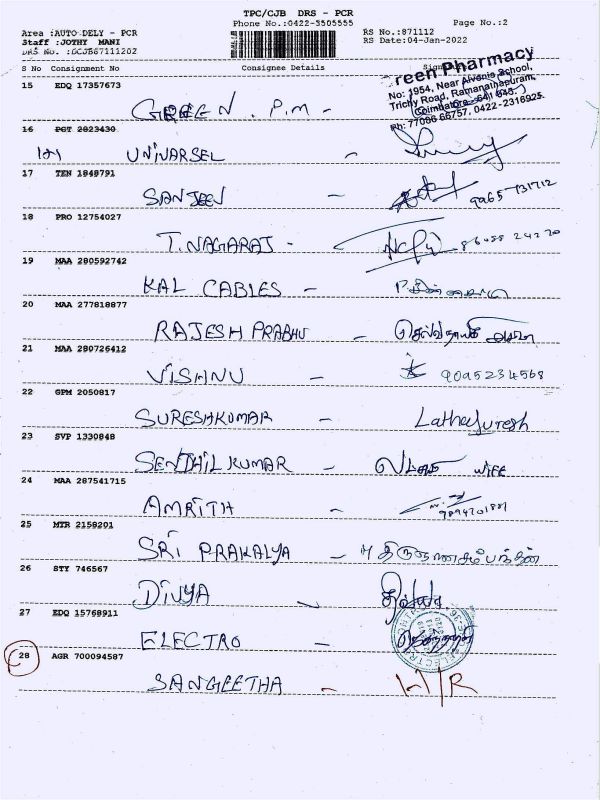 TPC/CJB DRS - PCR
Phone No.:0422-3505555
Page No.:2
Area :AUTO DELY - PCR
Staff :JOTHY MANI
DRS No. :OCJB67111202
RS No.:871112
RS Date:04-Jan-2022
S No Consignment No Consignee Details
reen Pharmacy
No: 1954, Near Alvenia School,
Trichy Road, Ramanathapuram,
Coimbatore - 641 045.
Ph: 77086 66757, 0422-2316925.
15 EDQ 17357673
GREEN . P.M -
16 PGT 2823430
UNIVARSEL -
17 TEN 1848791
SANJEEV -
18 PRO 12754027
T.NAGARAJ -
19 MAA 280592742
KAL CABLES -
20 MAA 277818877
RAJESH PRABHU -
21 MAA 280726412
VISHNU - 9095234568
22 GPM 2050817
SURESHKUMAR - Latha Suresh
23 SVP 1330848
SENTHIL KUMAR - wife
24 MAA 287541715
AMRITH -
25 MTR 2158201
SRI PRAKALYA - H திருஞானசம்பந்தன்
26 STY 746567
DIVYA -
27 EDQ 15768911
ELECTRO -
28 AGR 700094587
SANGEETHA -